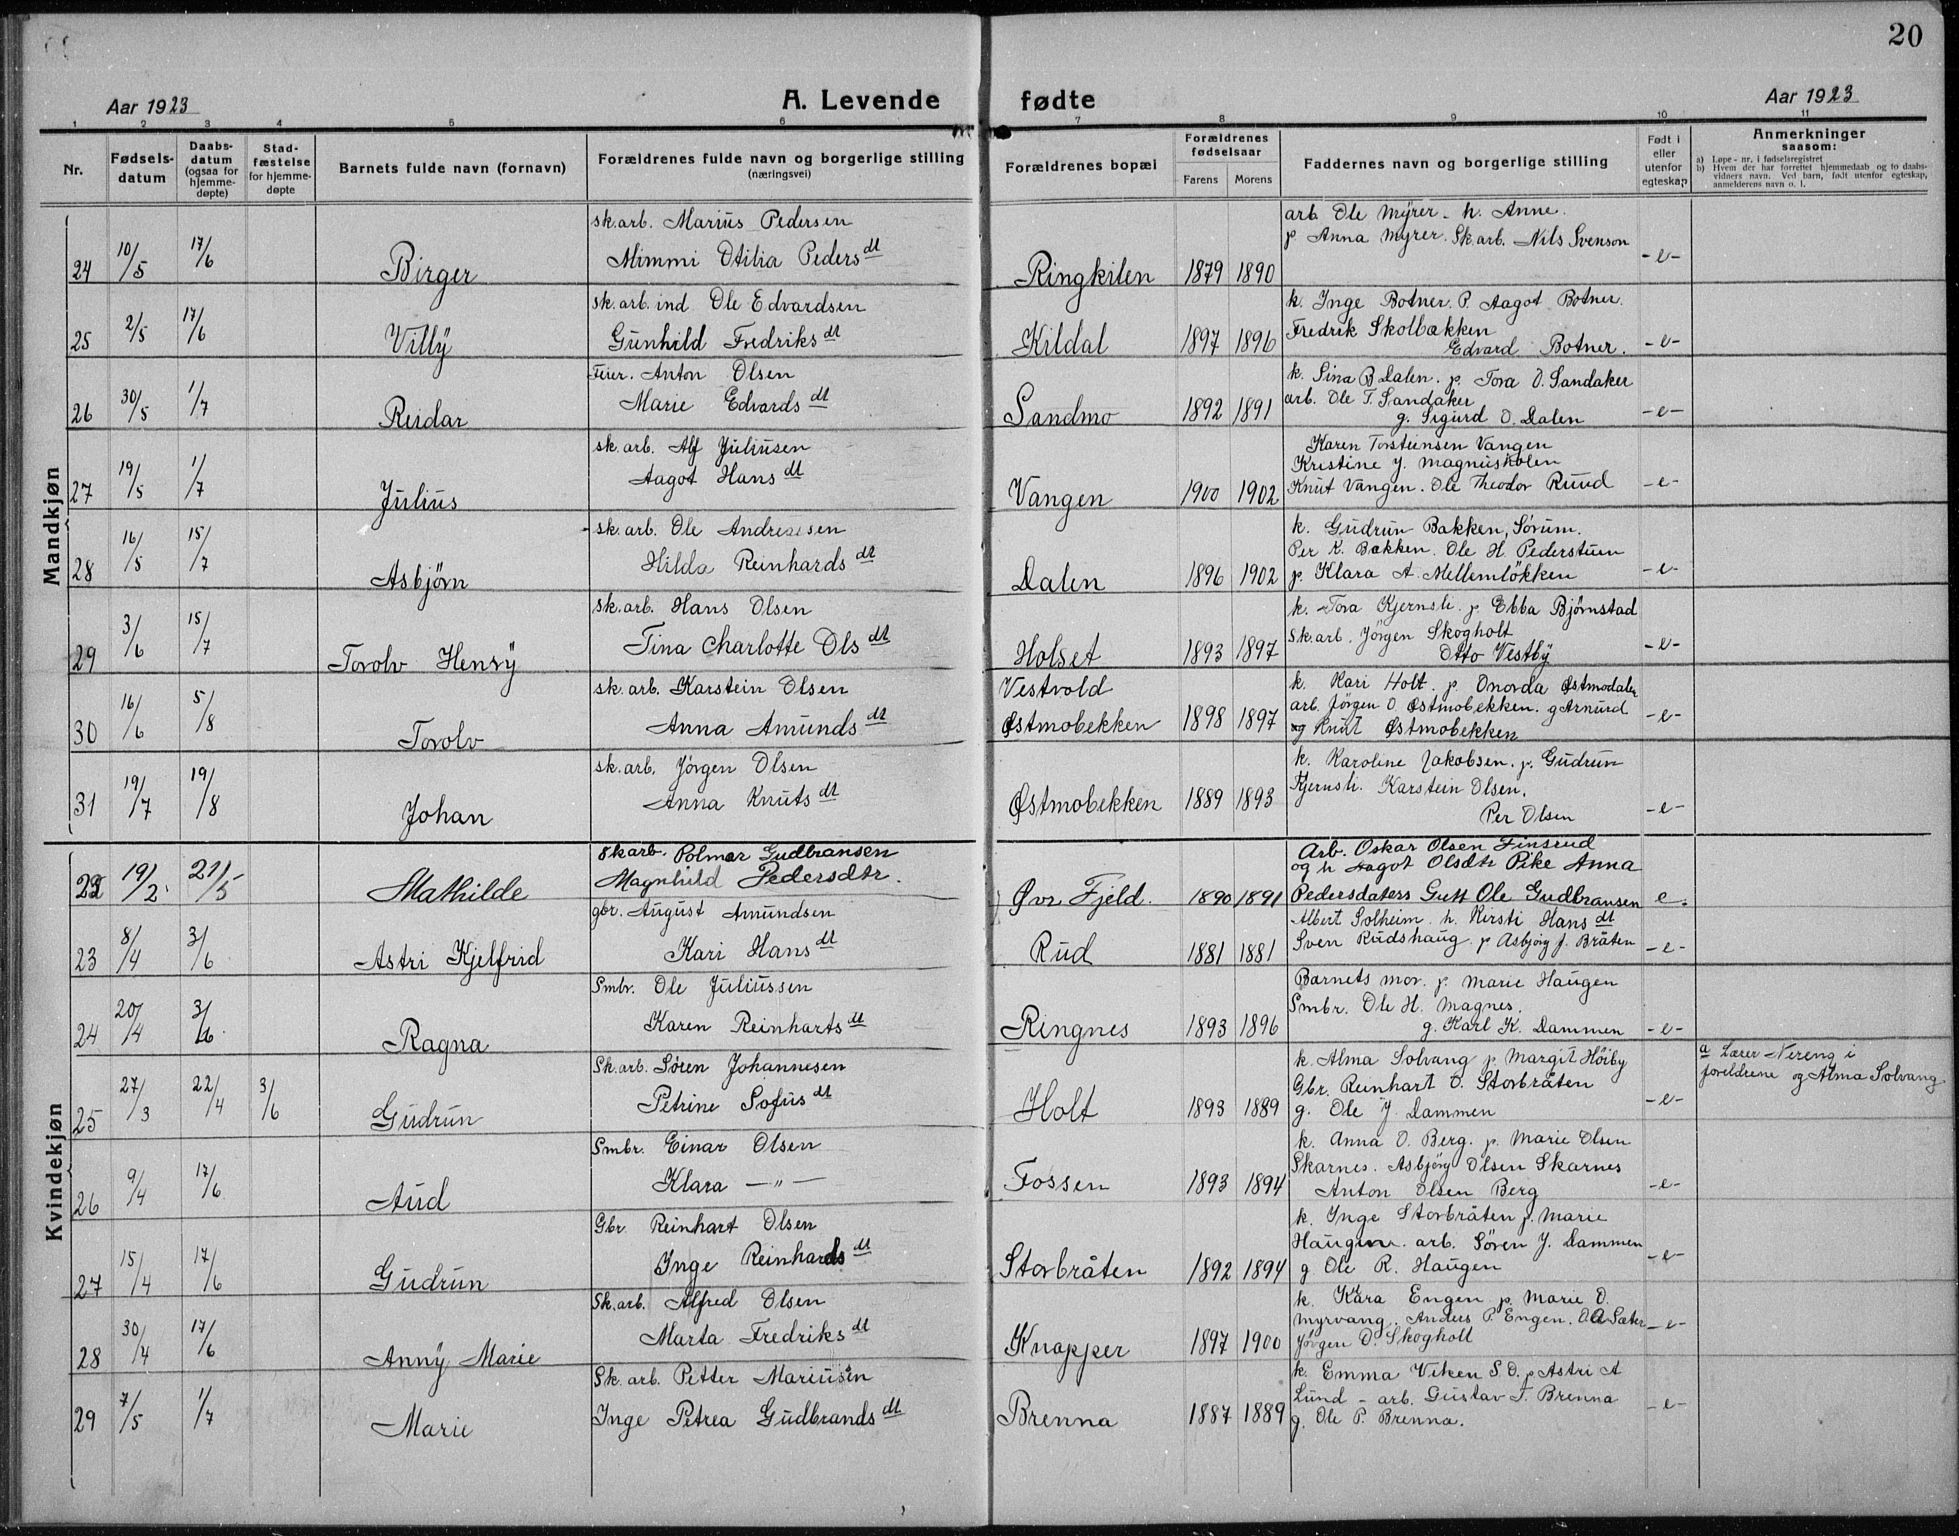 20
Aar 1923
A. Levende fødte
Aar 1923
1 2 3 4 5 6 7 8 9 10 11
Nr.
Fødsels-
datum
Daabs-
datum
(ogsaa for
hjemme-
døpte)
Stad-
fæstelse
for hjemme-
døpte
Barnets fulde navn (fornavn)
Forældrenes fulde navn og borgerlige stilling
(næringsvei)
Forældrenes bopæl
Forældrenes
fødselsaar
Farens Morens
Faddernes navn og borgerlige stilling
Født i
eller
utenfor
egteskap
Anmerkninger
saasom:
a) Løpe-nr. i fødselsregistret
b) Hvem der har forrettet hjemmedaab og to daabs-
vidners navn. Ved barn, født utenfor egteskap,
anmelderens navn o. l.
Mandkjøn
24 10/5 17/6 Birger
sk.arb. Marius Pedersen
Mimmi Otilia Peders dt
Ringkilen 1879 1890
arb. Ole Myrer - h. Anne.
p Anna Myrer. Sk.arb. Nils Svenson
-e-
25 2/5 17/6 Villÿ
sk.arb. ind Ole Edvardsen
Gunhild Fredriks dt
Kildal 1897 1896
k. Inge Botner. P. Aagot Botner.
Fredrik Skolbækken
Edvard Botner.
-e-
26 30/5 1/7 Reidar
Feier. Anton Olsen
Marie Edvards dt
Sandmo 1892 1891
k. Sina B Dalen. p Tora O. Sandaker
arb. Ole T. Sandaker
g. Sigurd O. Dalen
-e-
27 19/5 1/7 Julius
sk. arb. Alf Juliusen
Aagot Hans dt
Vangen 1900 1902
Karen Torsteinsen Vangen
Kristine J. Magnuskolen
Knut Vangen. Ole Theodor Ruud
-e-
28 16/5 15/7 Asbjørn
sk. arb. Ole Andreasen
Hilda Reinhards dt
Dalen 1896 1902
k. Gudrun Bakken, Sørum.
Per K. Bækken. Ole H. Pederstuen
p. Klara A. Mellemløkken
-e-
29 3/6 15/7 Torolv Henrÿ
sk.arb. Hans Olsen
Tina Charlotte Ols dt
Holset 1893 1897
k. Tora Kjernsli. p Ebba Bjørnstad
Sk.arb. Jörgen Skogholt
Otto Vestby
-e-
30 16/6 5/8 Torolv
sk. arb. Karstein Olsen
Anna Amunds dt
Vestvold
Østmobekken 1898 1897
k. Kari Holt. p Onorda Østmodalen
arb. Jörgen O Østmobekken. g Arnurd
og Knut Østmobekken
-e-
31 19/7 19/8 Johan
sk.arb. Jörgen Olsen
Anna Knuts dt
Østmobekken 1889 1893
k. Karoline Jakobsen. p. Gudrun
Kjernsli. Karstein Olsen.
Per Olsen
-e-
Kvindekjøn
22 19/2. 21/5 Mathilde
Skarb. Polmar Gudbransen
Magnhild Pedersdtr.
Øvr Fjeld. 1890 1891
Arb. Oskar Olsen Finsrud
og h Aagot Olsdtr Pike Anna
Pedersdaters Gutt Ole Gudbransen
e.
23 8/4 3/6 Astri Kjelfrid
gbr. August Amundsen
Kari Hans dt
Rud 1881 1881
Albert Solheim. h. Kirsti Hans dt
Sven Rudshaug. p Asbjørg J. Bråten
-e-
24 20/4 3/6 Ragna
Smbr. Ole Juliussen
Karen Reinharts dt
Ringnes 1893 1896
Barnets mor. p. Marie Haugen
Smbr. Ole H. Magnes.
g. Karl K. Dammen
-e-
25 27/3 22/4 3/6 Gudrun
Sk.arb. Søren Johannesen
Petrine Sofus dt
Holt 1893 1889
k. Alma Solvang p. Margit Höiby
Gbr. Reinhart O. Storbråten
g. Ole J Dammen
-e-
a Lærer Nereng i
foreldrene og Alma Solvang
26 9/4 17/6 Aud
Smbr. Einar Olsen
Klara —"—
Fossen 1893 1894
k. Anna O. Berg. p. Marie Olsen
Skarnes. Asbjörg Olsen Skarnes
Anton Olsen Berg
-e-
27 15/4 17/6 Gudrun
Gbr. Reinhart Olsen
Inge Reinhards dt
Storbråten 1892 1894
k. Inge Storbråten p. Marie
Haugen. arb. Søren J. Dammen
g Ole R. Haugen
-e-
28 30/4 17/6 Annÿ Marie
Sk.arb. Alfred Olsen
Marta Fredriks dt
Knapper 1897 1900
k. Kara Engen p. Marie O.
Myrvang. Anders P. Engen. Ole Sæter
Jörgen O. Skogholt
-e-
29 7/5 1/7 Marie
Sk. arb. Petter Mariusen
Inge Petrea Gudbrands dt
Brenna 1887 1889
k. Emma Viken S.O. p Astri A
Lund - arb. Gustav T. Brenna
g. Ole P. Brenna.
-e-